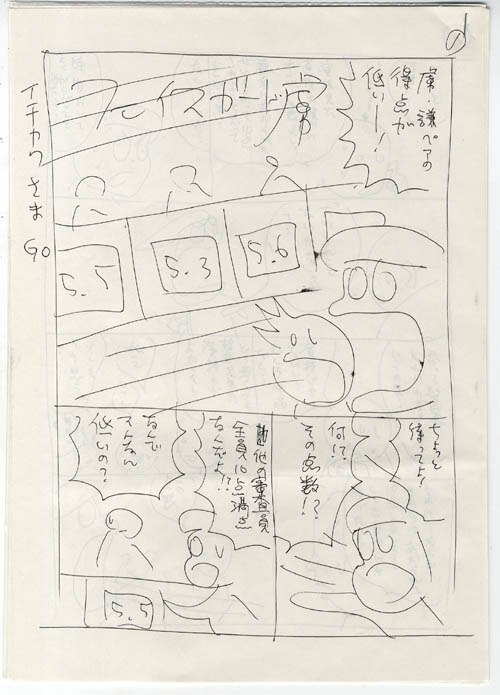 イチカワさま
GO
フェイスガード虜
虜・謙ペアの
得点が
低いー!
5.5
5.3
5.6
ちょっと
待ってよ!
何!?
その点数!?
他の審査員
全員10点満点
なんだよ!?
なんで
そんな
低いの?
5.5